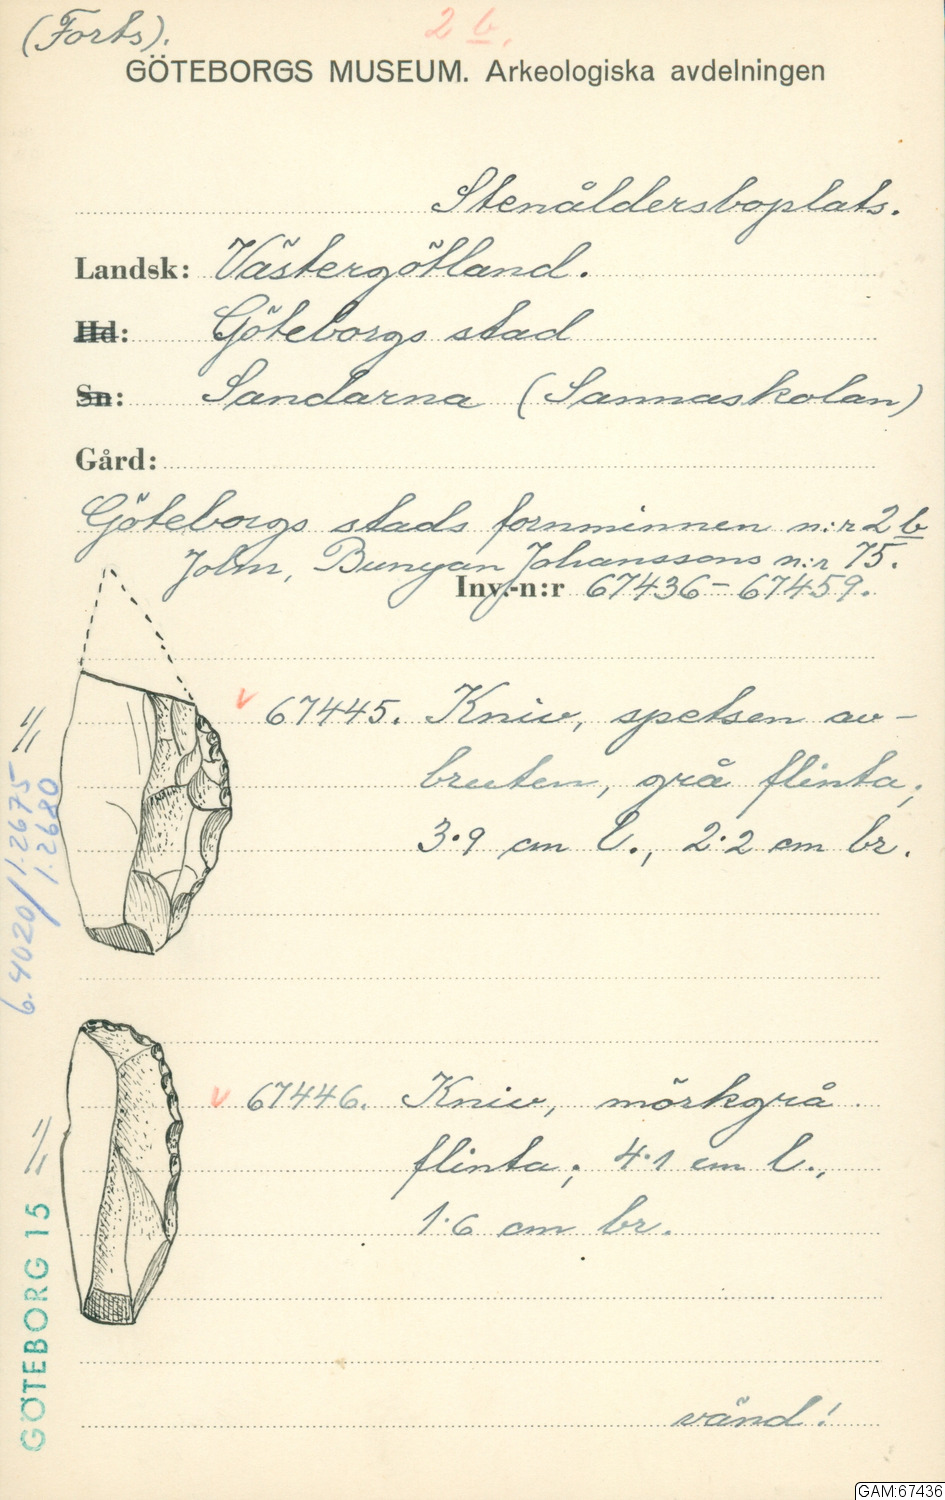 (Forts).
2 b.
GÖTEBORGS MUSEUM. Arkeologiska avdelningen
Stenåldersboplats.
Landsk: Västergötland.
Hd: Göteborgs stad
Sn: Sandarna (Sannaskolan)
Gård:
Göteborgs stads fornminnen n:r 2 b
John, Bunyan Johanssons n:r 75.
Inv.-n:r 67436-67459.
1/1
v 67445. Kniv, spetsen av-
bruten, grå flinta;
3·9 cm l., 2·2 cm br.
6.4020/1.2675
1.2680
1/1
v 67446. Kniv, mörkgrå
flinta; 4·1 cm l.,
1·6 cm br.
GÖTEBORG 15
vänd!
GAM:67436